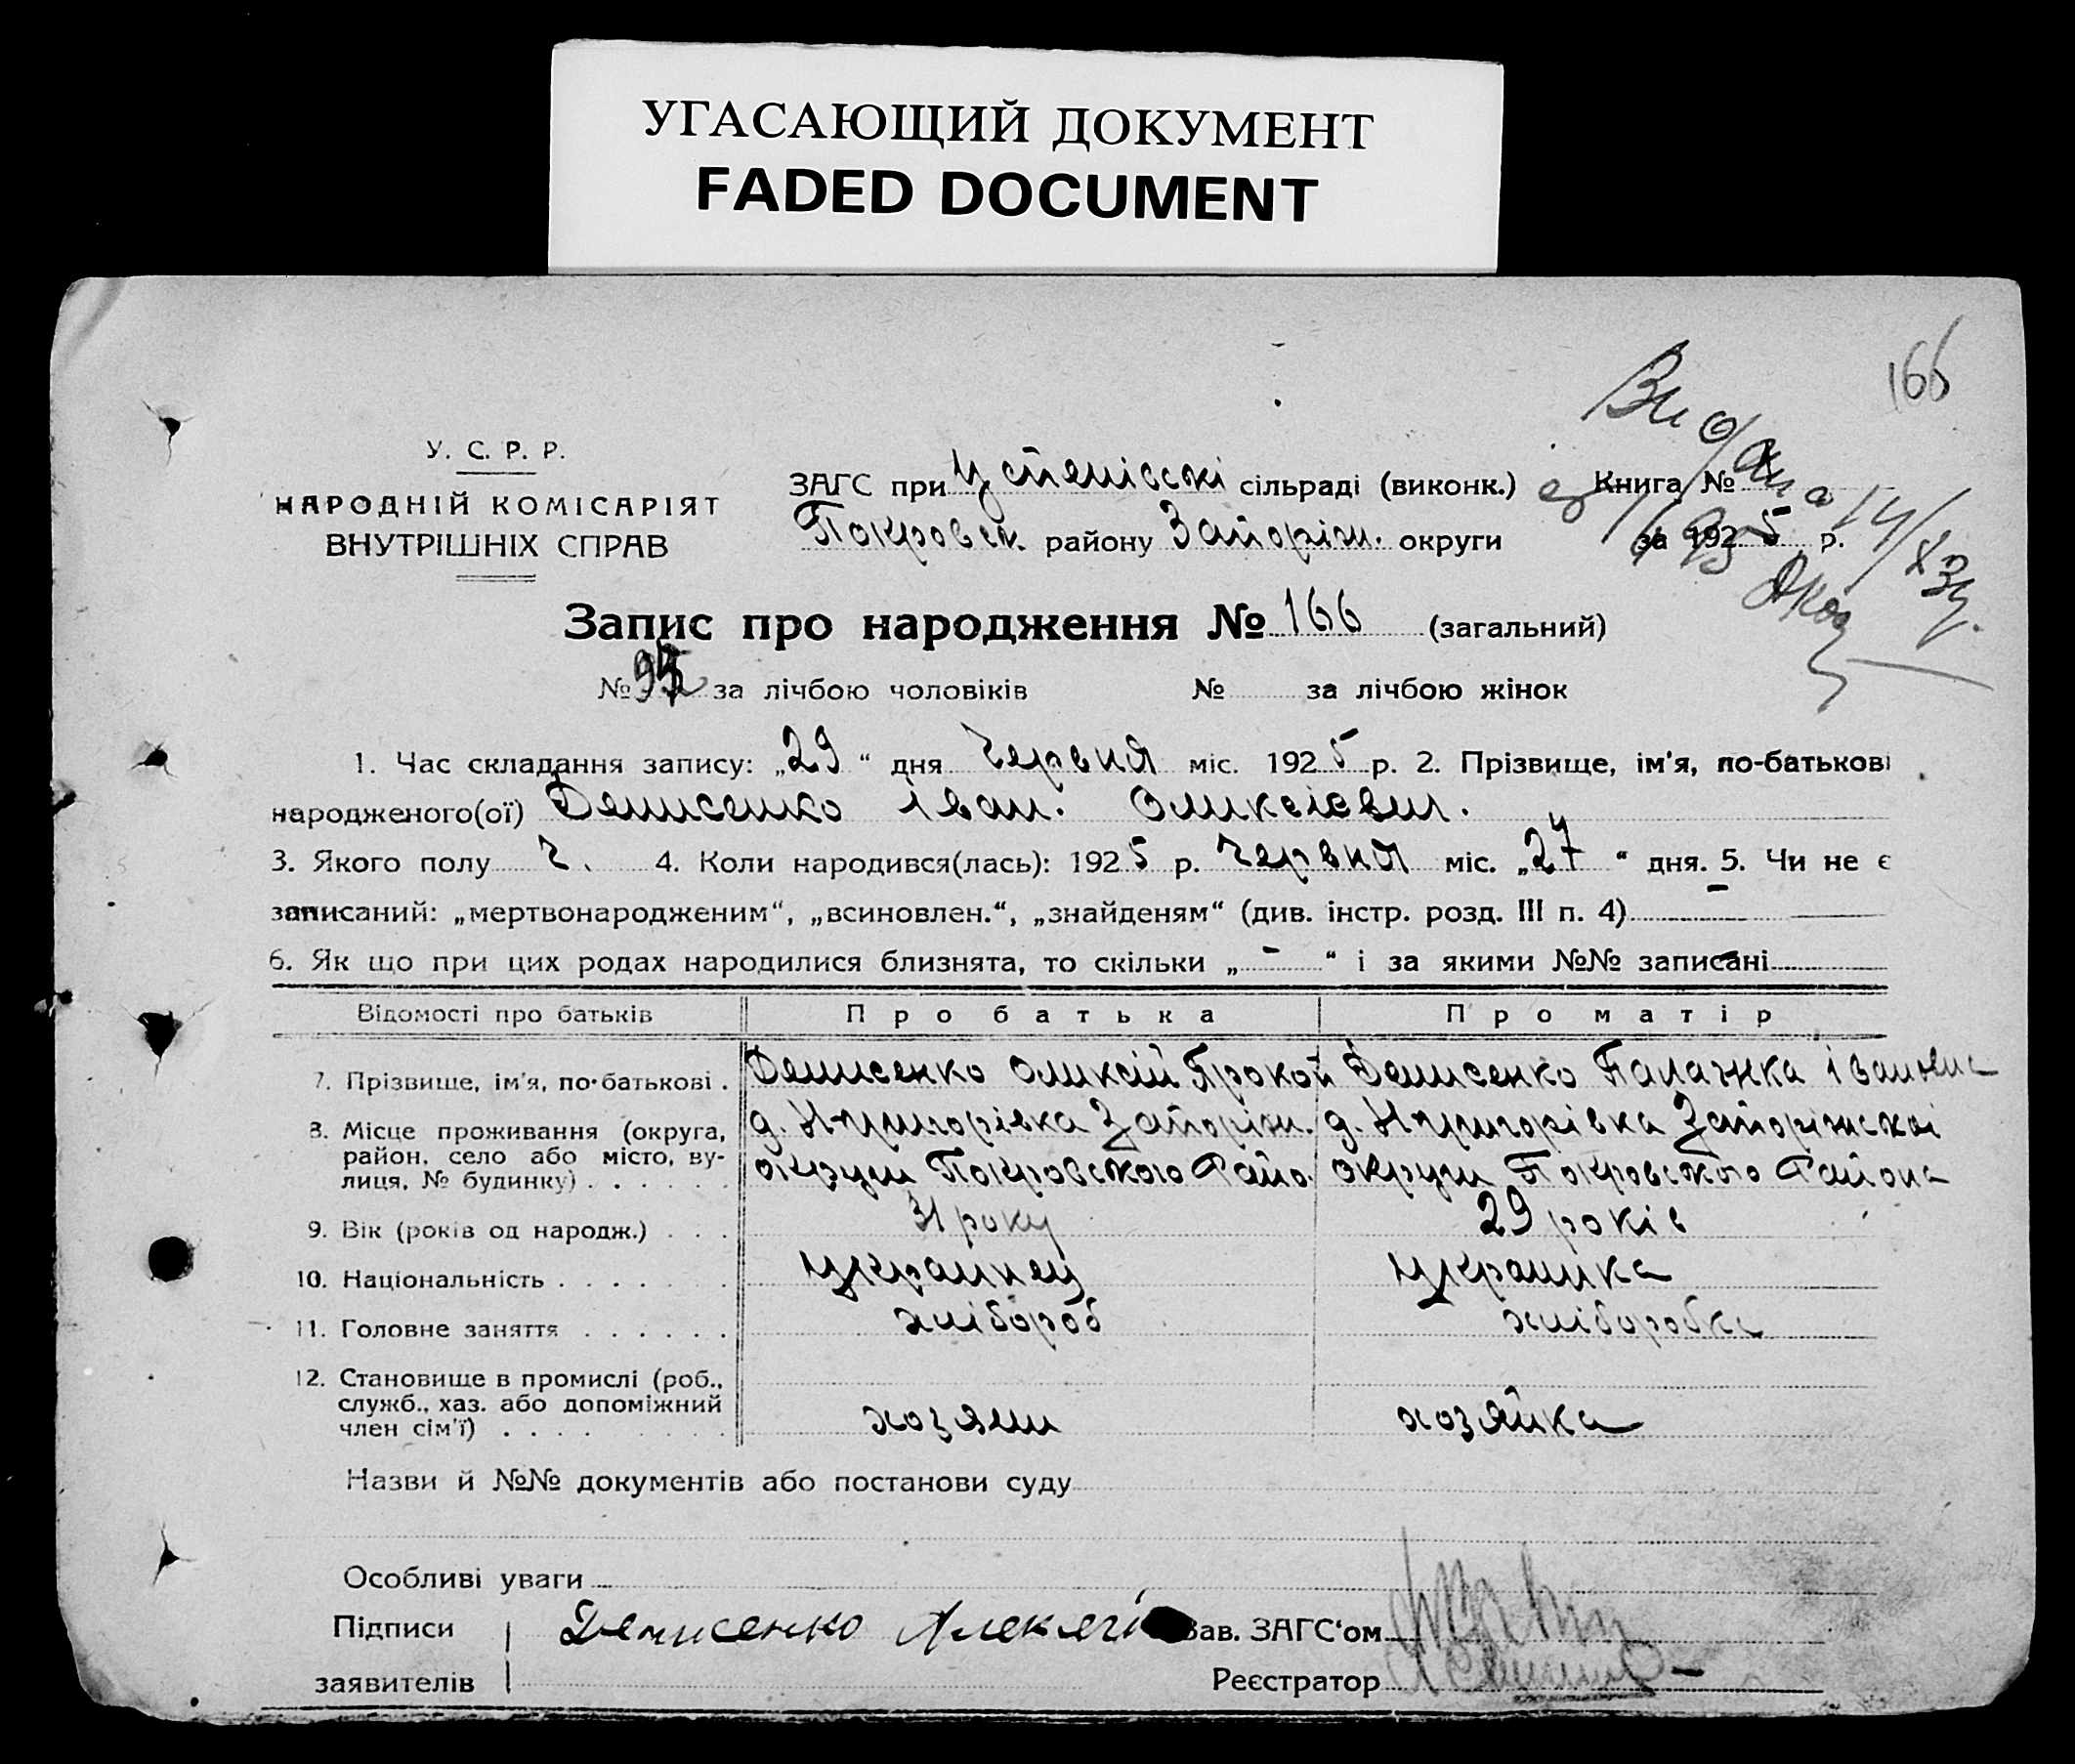 УГАСАЮЩИЙ ДОКУМЕНТ
FADED DOCUMENT
166
У. С. Р. Р.
НАРОДНІЙ КОМІСАРІЯТ
ВНУТРІШНІХ СПРАВ
ЗАГС при сільраді (виконк.)
Покровськ. району Запоріж. округи
Книга №
за 1925 р.
Видана
Запис про народження № 166 (загальний)
№ за лічбою чоловіків № за лічбою жінок
1. Час складання запису: „29“ дня Червня міс. 1925 р. 2. Прізвище, ім'я, по-батькові
народженого(ої) Денисенко Іван. Оликсієвич.
3. Якого полу ч. 4. Коли народився(лась): 1925 р. Червня міс. „27“ дня. 5. Чи не є
записаний: „мертвонародженим“, „всиновлен.“, „знайденям“ (див. інстр. розд. III п. 4) –
6. Як що при цих родах народилися близнята, то скільки „–“ і за якими №№ записані –
Відомості про батьків Про батька Про матір
7. Прізвище, ім'я, по-батькові . Денисенко Оликсій Прокоп Денисенко Палажка Іванивна
8. Місце проживання (округа, район, село або місто, вулиця, № будинку) . . . . . .
д. Запоріж. округи Покровського Райо. д. Запоріжскоі округи Покровського Района
9. Вік (років од народж.) . . . 31 року 29 років
10. Національність . . . . . . . Украинец Украинка
11. Головне заняття . . . . . . хлібороб хліборобка
12. Становище в промислі (роб., служб., хаз. або допоміжний член сім'ї) . . . .
хозяин хозяйка
Назви й №№ документів або постанови суду
Особливі уваги
Підписи Денисенко Зав. ЗАГС‘ом
заявителів Реєстратор